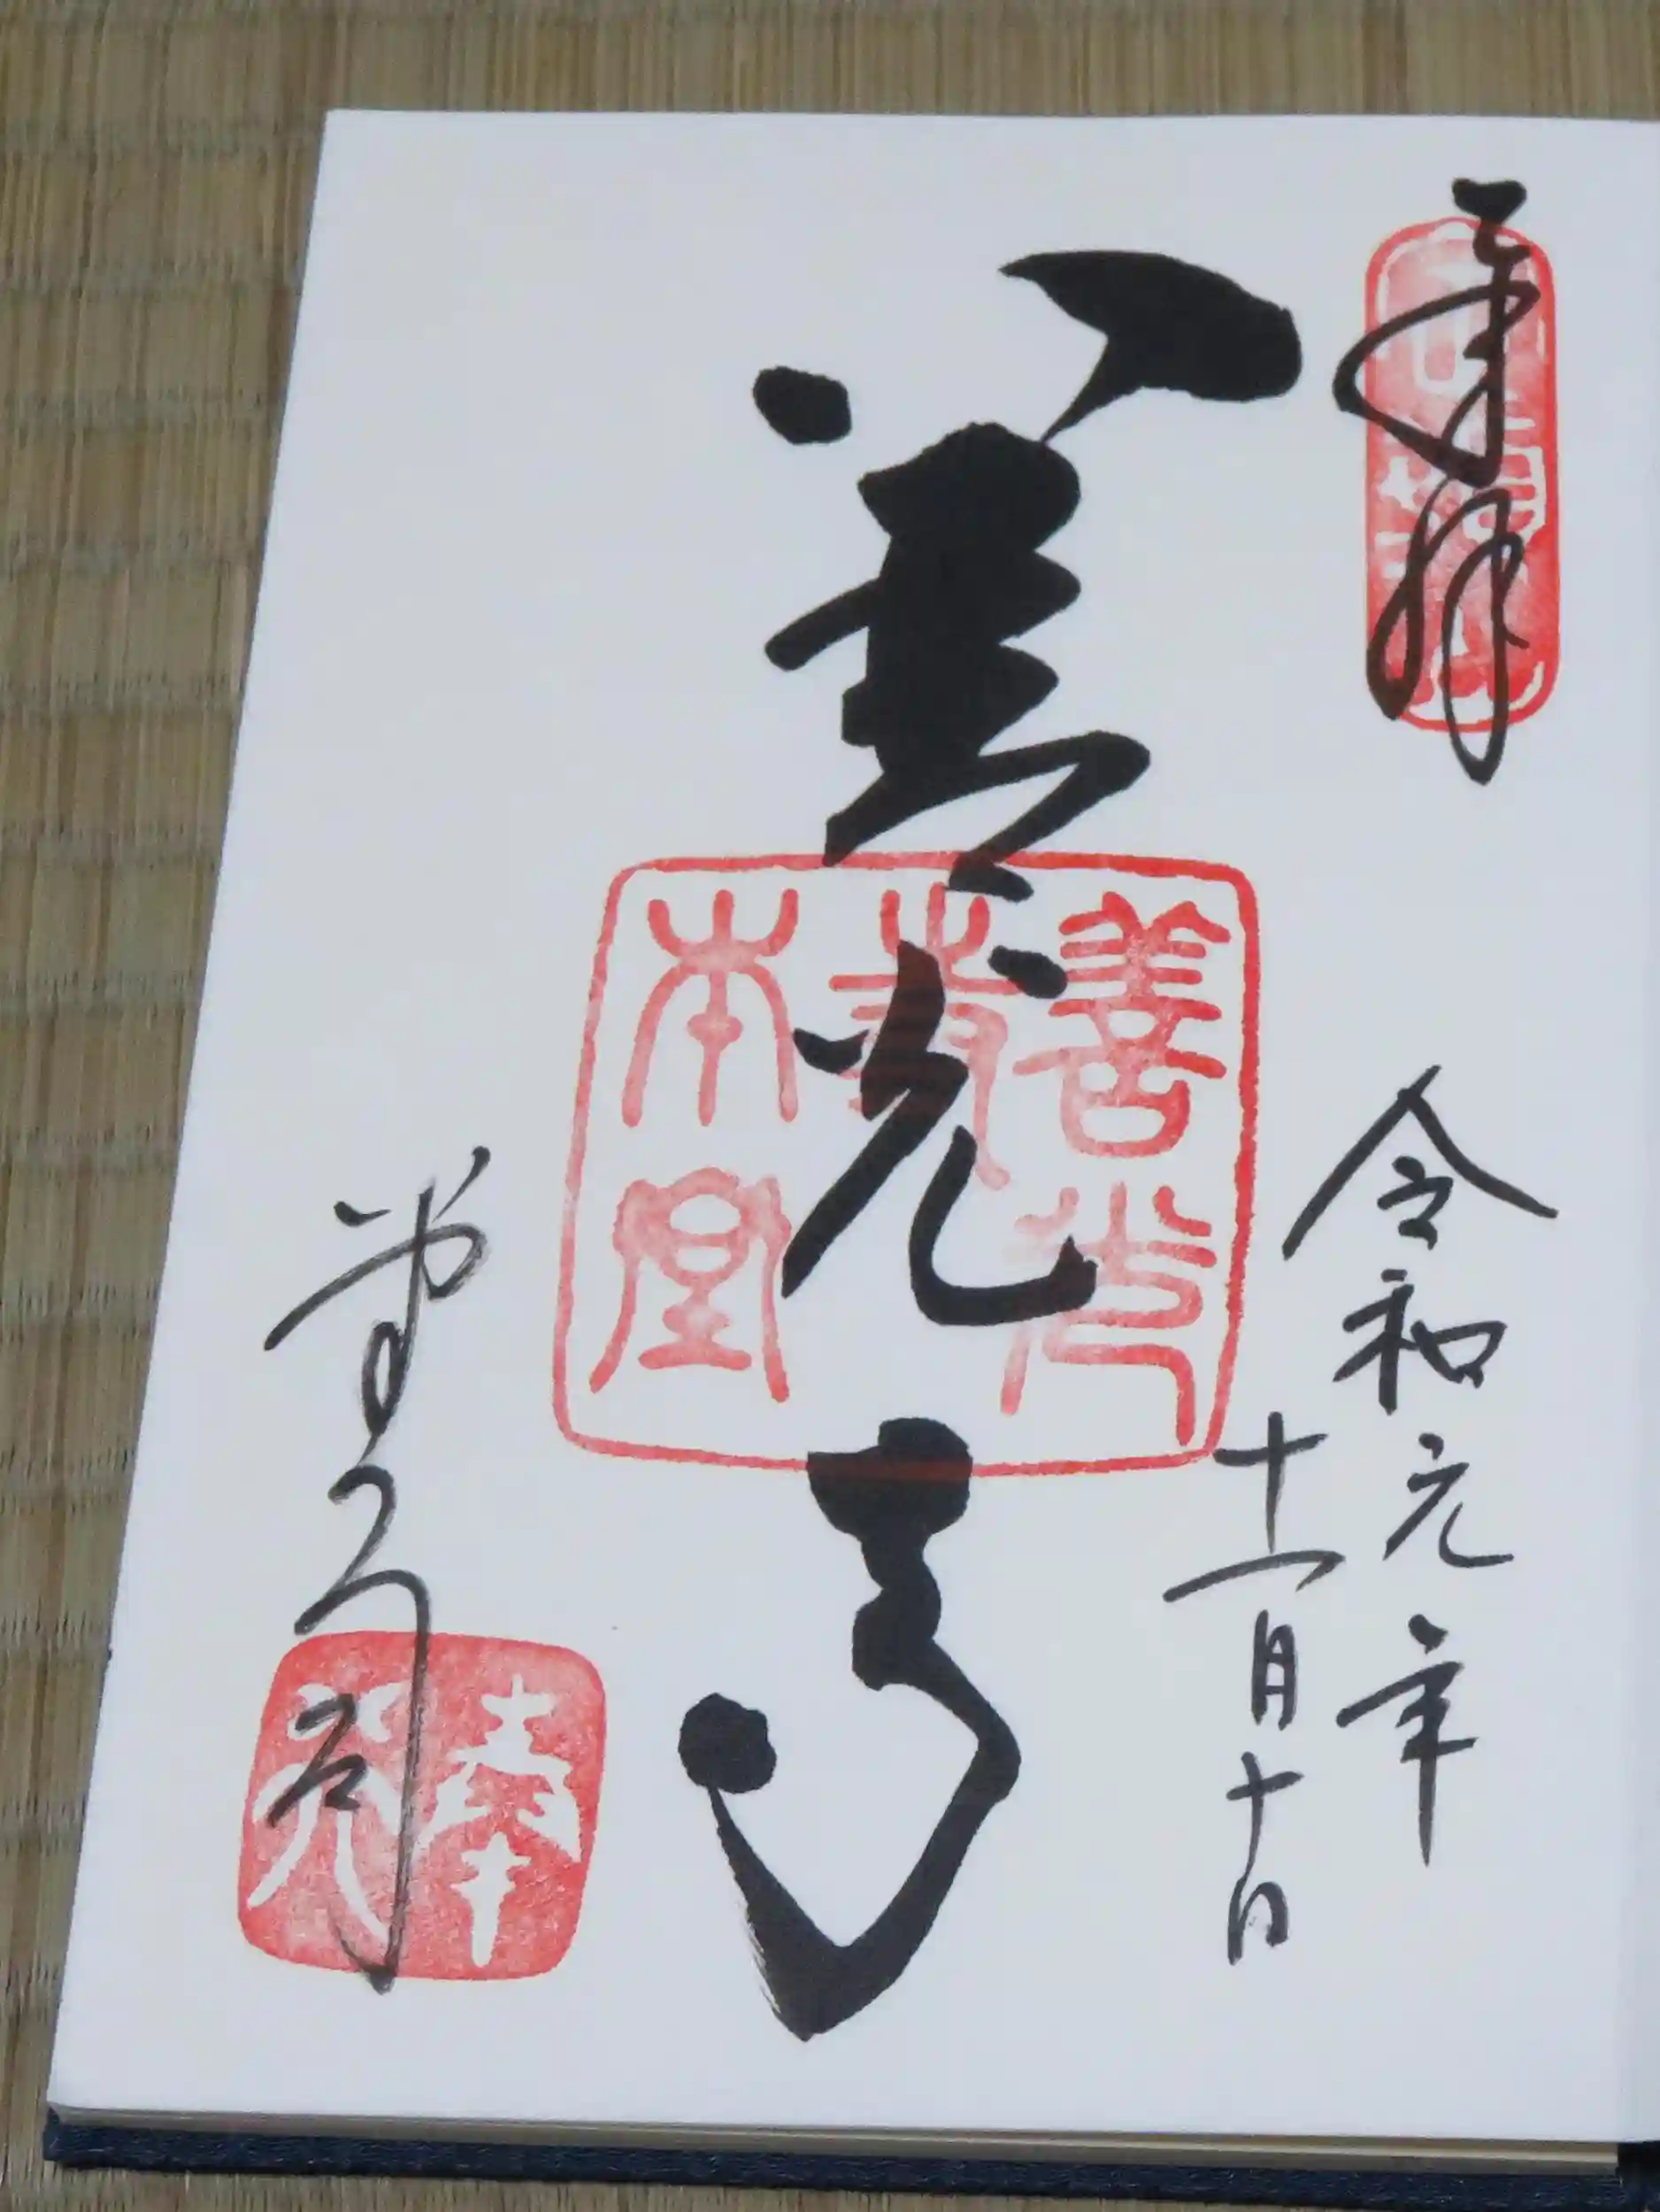 奉拝
令和元年
十一月十日
善光寺
善光
寺
本堂
奉